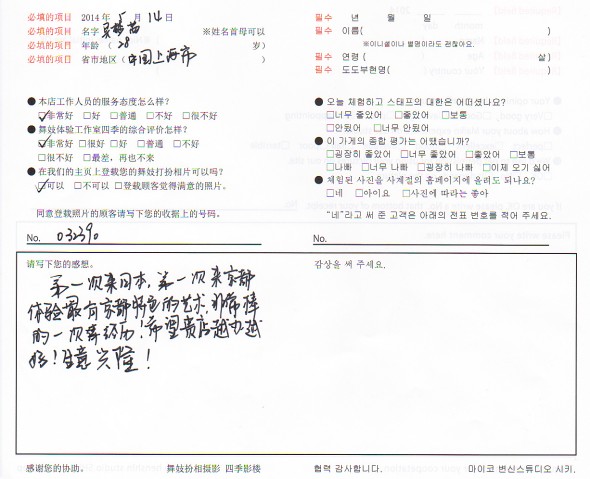 必填的项目 2014 年 5 月 14 日
必填的项目 名字 ※姓名首母可以
必填的项目 年龄 ( 28 岁)
必填的项目 省市地区 ( 中国上海市 )
●本店工作人员的服务态度怎么样?
☑非常好 □好 □普通 □不好 □很不好
●舞妓体验工作室四季的综合评价怎样?
☑非常好 □很好 □好 □普通 □不好
□很不好 □最差，再也不来
●在我们的主页上登载您的舞妓打扮相片可以吗?
☑可以 □不可以 □登载顾客觉得满意的照片。
同意登载照片的顾客请写下您的收据上的号码。
No. 032390
请写下您的感想。
第一次来日本，第一次来京都
体验最有京都特色的艺术，非常棒
的一次经历！希望贵店越办越
好！生意兴隆！
感谢您的协助。 舞妓扮相摄影 四季影楼
필수 년 월 일
필수 이름( )
※이니셜이나 별명이라도 괜찮아요.
필수 연령 ( 살)
필수 도도부현명( )
● 오늘 체험하고 스태프의 대한은 어떠셨나요?
□너무 좋았어 □좋았어 □보통
□안됬어 □너무 안됬어
● 이 가게의 종합 평가는 어땠습니까?
□굉장히 좋았어 □너무 좋았어 □좋았어 □보통
□나빠 □너무 나빠 □굉장히 나빠 □이제 오기 싫어
● 체험된 사진을 사계절의 홈페이지에 올려도 되나요?
□네 □아이요 □사진에 따라는 좋아
"네"라고 써 준 고객은 아래의 전표 번호를 적어 주세요.
No.
감상을 써 주세요.
협력 감사합니다. 마이코 변신스튜디오 시키.